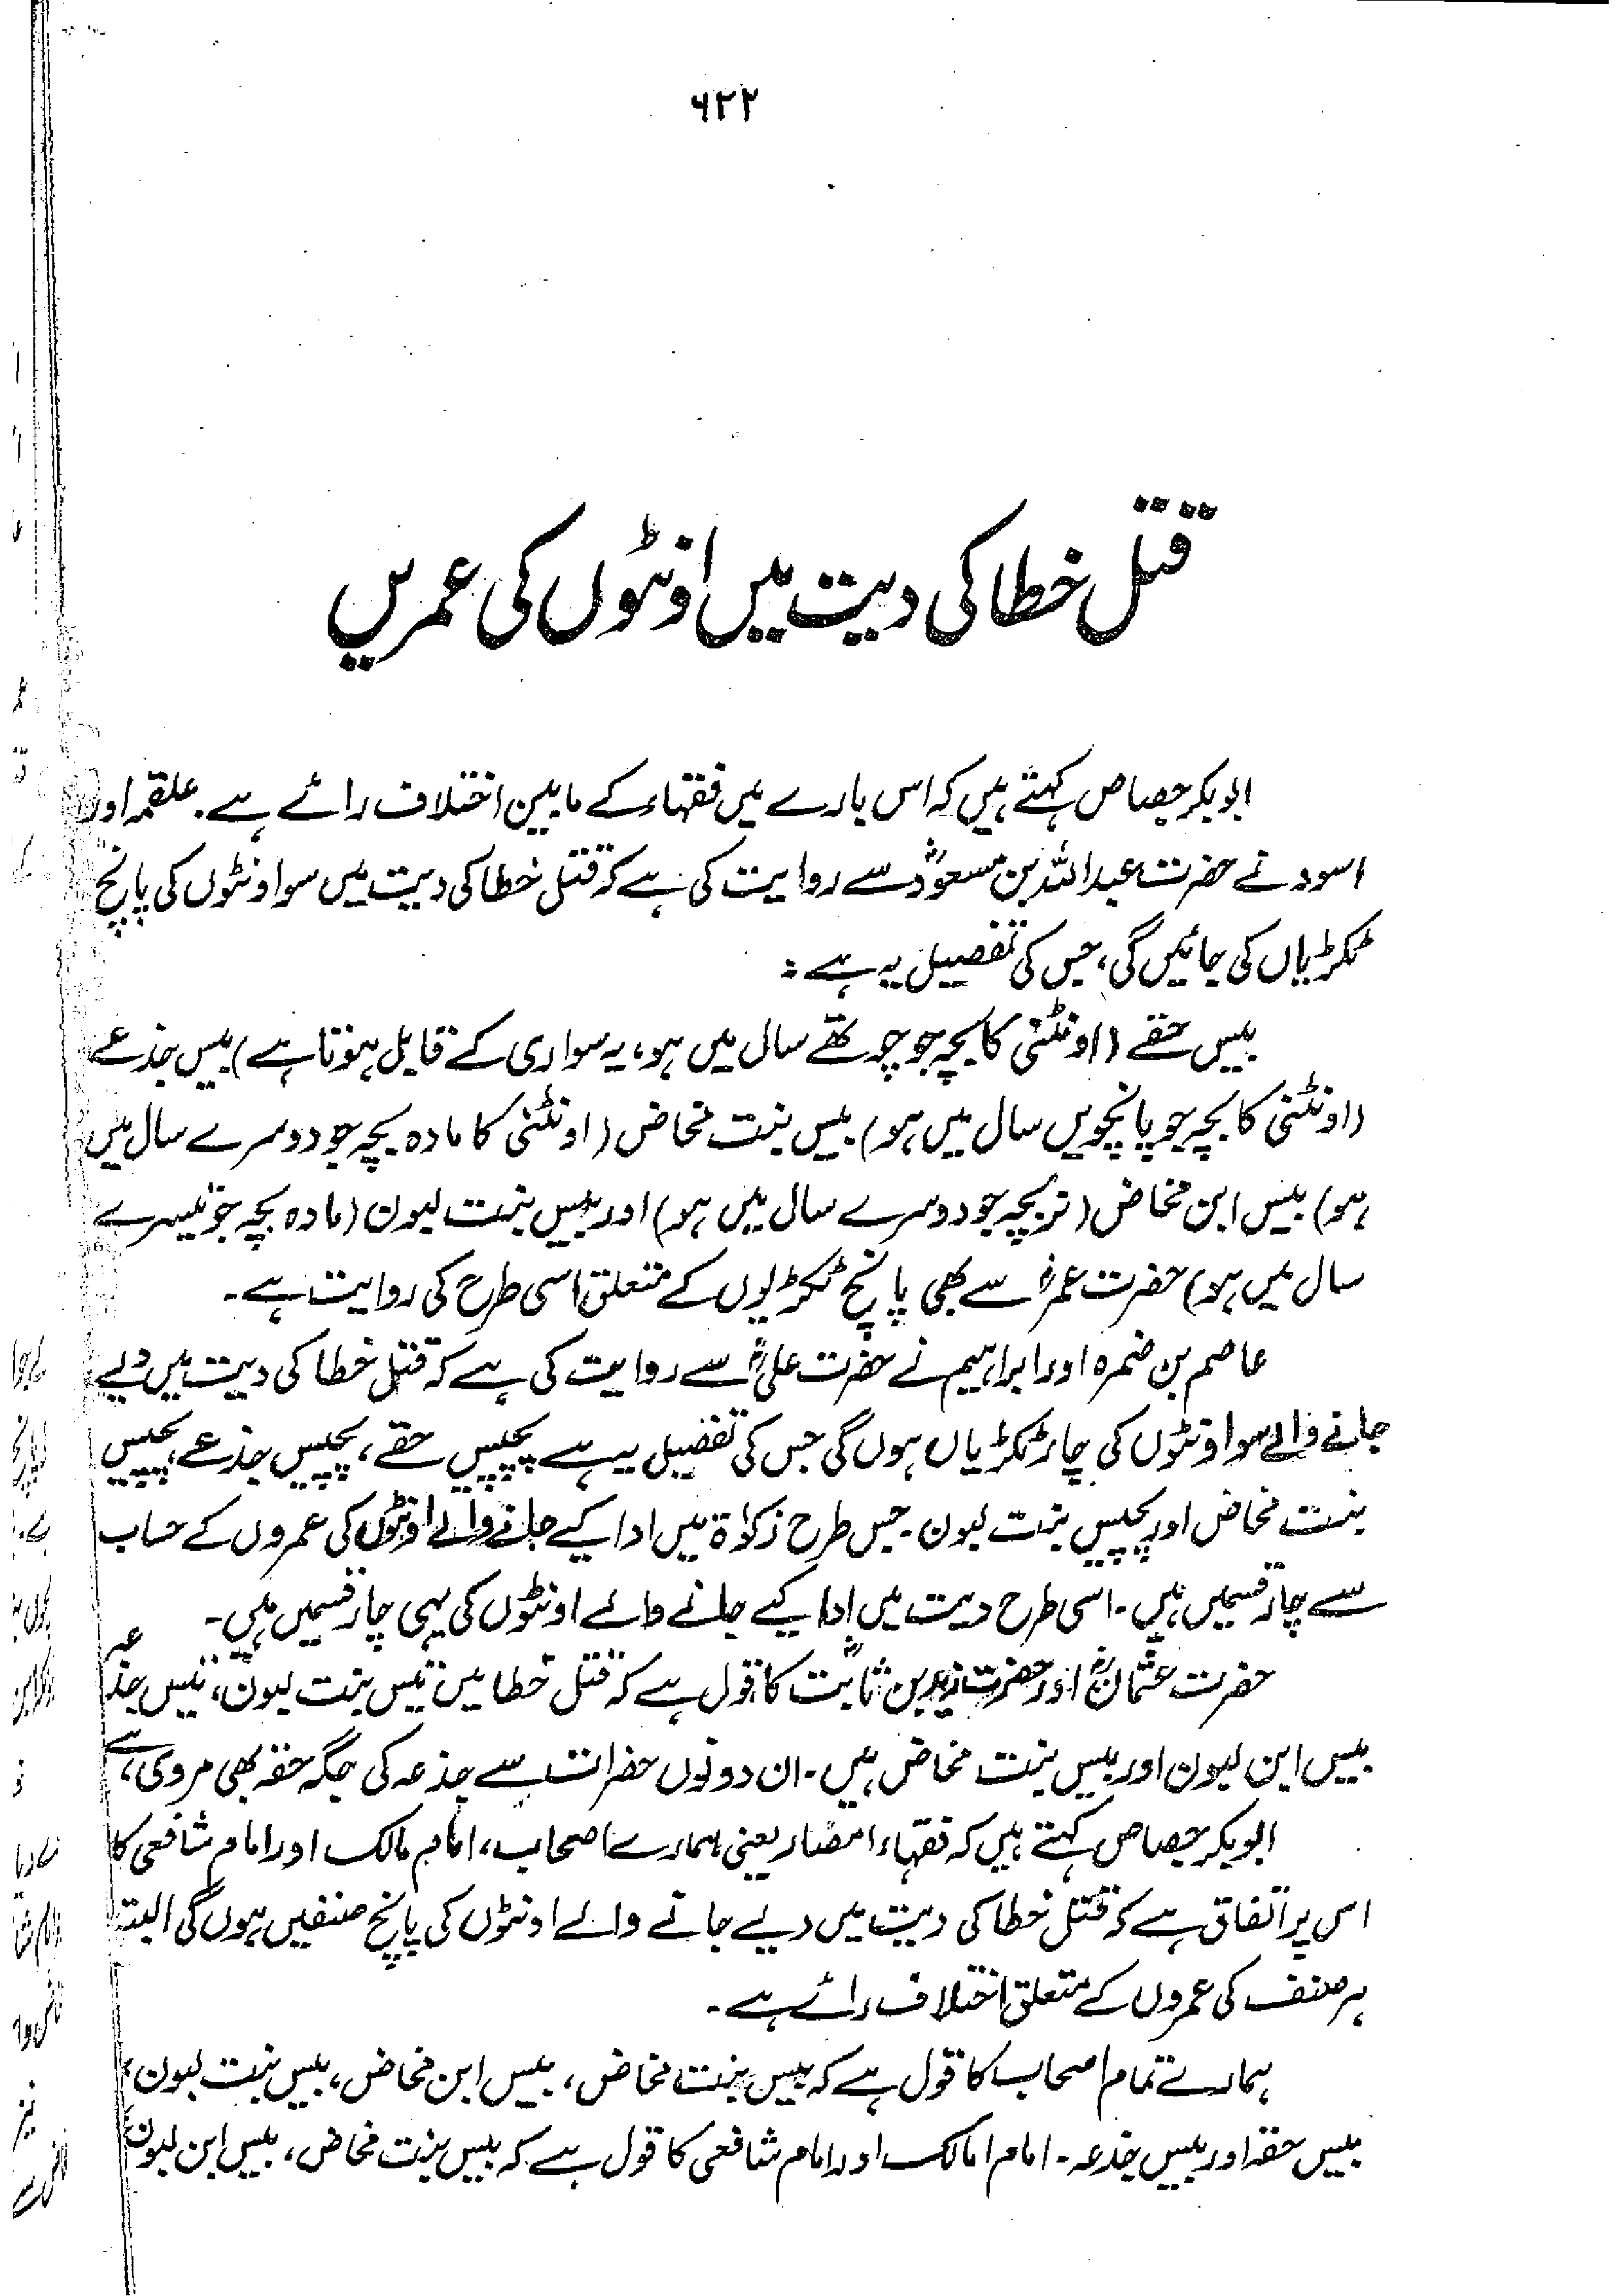 ۶۲۲
قتل خطا کی دیت میں اونٹوں کی عمریں
ابوبکر جصاص کہتے ہیں کہ اس بارے میں فقہاء کے مابین اختلاف رائے ہے۔ علقمہ اور
اسود نے حضرت عبداللہ بن مسعودؓ سے روایت کی ہے کہ قتل خطا کی دیت میں سو اونٹوں کی پانچ
ٹکڑیاں کی جائیں گی، جس کی تفصیل یہ ہے :
بیس حقے (اونٹنی کا بچہ جو چوتھے سال میں ہو، یہ سواری کے قابل ہوتا ہے) بیس جذعے
(اونٹنی کا بچہ جو پانچویں سال میں ہو) بیس بنت مخاض (اونٹنی کا مادہ بچہ جو دوسرے سال میں
ہو) بیس ابن مخاض (نر بچہ جو دوسرے سال میں ہو) اور بیس بنت لبون (مادہ بچہ جو تیسرے
سال میں ہو) حضرت عمرؓ سے بھی پانچ ٹکڑیوں کے متعلق اسی طرح کی روایت ہے۔
عاصم بن ضمرہ اور ابراہیم نے حضرت علیؓ سے روایت کی ہے کہ قتل خطا کی دیت میں دیے
جانے والے سو اونٹوں کی چار ٹکڑیاں ہوں گی جس کی تفصیل یہ ہے پچیس حقے، پچیس جذعے، پچیس
بنت مخاض اور پچیس بنت لبون۔ جس طرح زکواۃ میں ادا کیے جانے والے اونٹوں کی عمروں کے حساب
سے چار قسمیں ہیں۔ اسی طرح دیت میں ادا کیے جانے والے اونٹوں کی یہی چار قسمیں ہیں۔
حضرت عثمانؓ اور حضرت زید بن ثابتؓ کا قول ہے کہ قتل خطا میں تیس بنت لبون، تیس جذعے
بیس ابن لبون اور بیس بنت مخاض ہیں۔ ان دونوں حضرات سے جذعہ کی جگہ حقہ بھی مروی ہے،
ابوبکر جصاص کہتے ہیں کہ فقہاء امصار یعنی ہمارے اصحاب، امام مالک اور امام شافعی کا
اس پر اتفاق ہے کہ قتل خطا کی دیت میں دیے جانے والے اونٹوں کی پانچ صنفیں ہوں گی البتہ
ہر صنف کی عمروں کے متعلق اختلاف رائے ہے۔
ہمارے تمام اصحاب کا قول ہے کہ بیس بنت مخاض، بیس ابن مخاض، بیس بنت لبون،
بیس حقہ اور بیس جذعہ۔ امام امالک اور امام شافعی کا قول ہے کہ بیس بنت مخاض، بیس ابن لبون